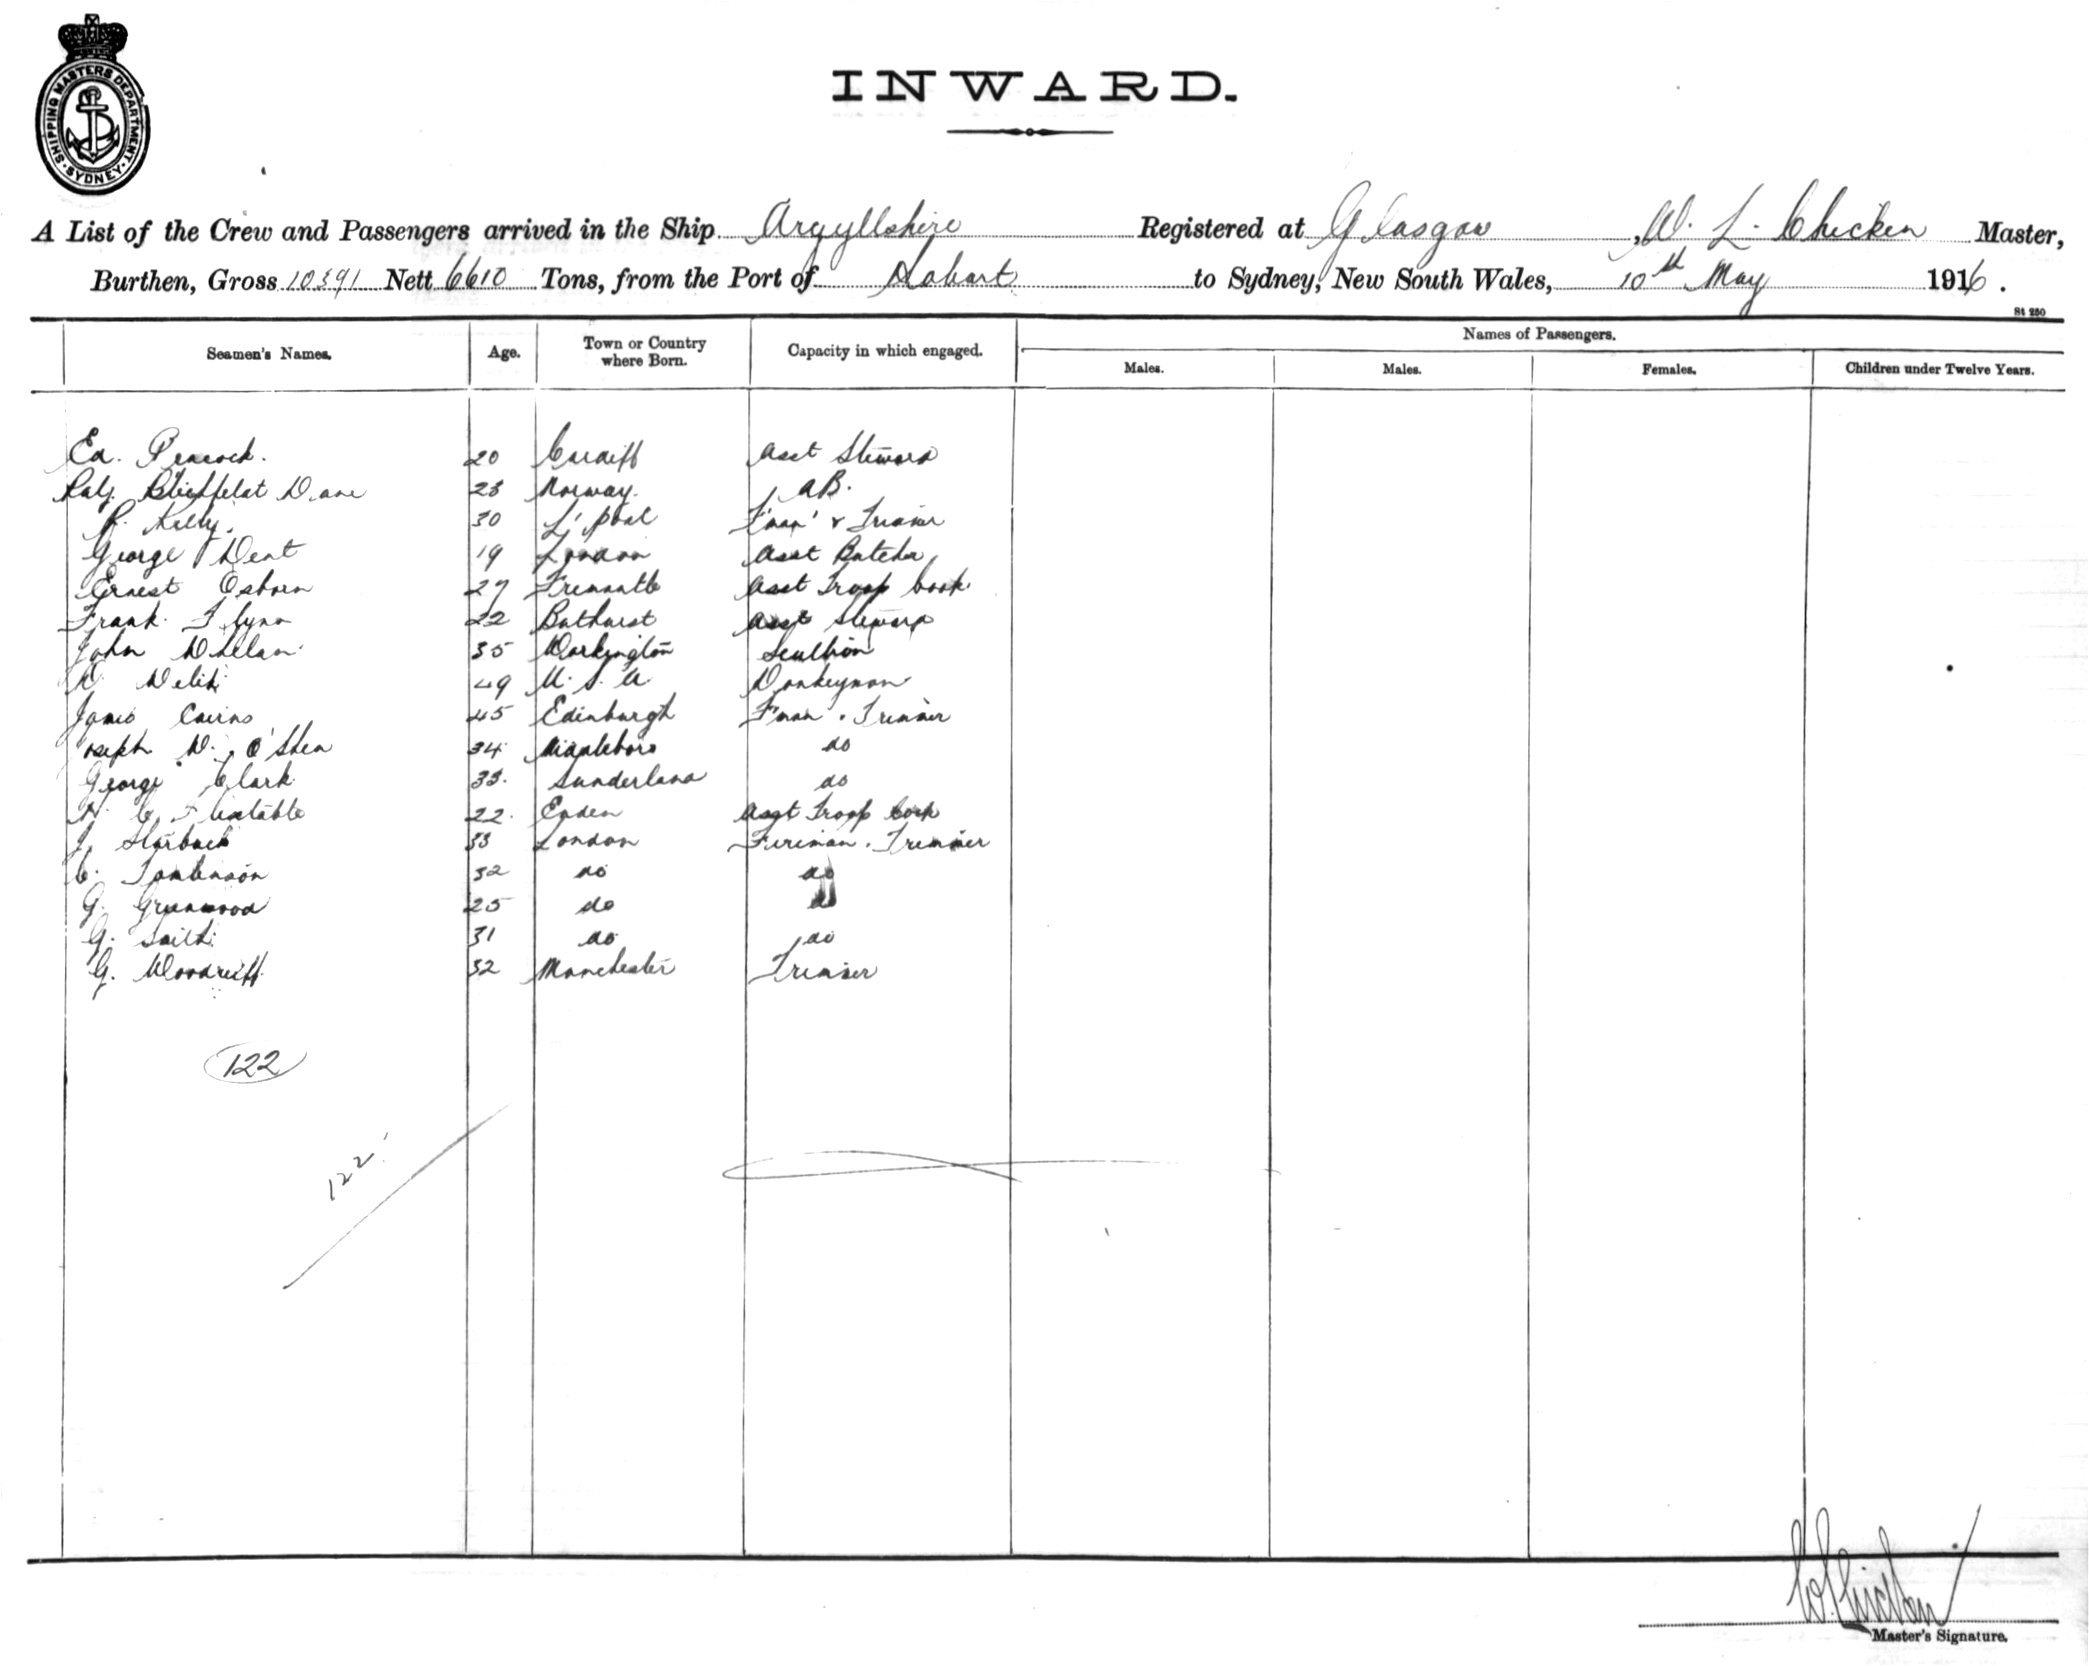 SHIPPING MASTERS DEPARTMENT. SYDNEY.
INWARD.
A List of the Crew and Passengers arrived in the Ship Argyllshire Registered at Glasgow, W. L. Chicken Master,
Burthen, Gross 10391 Nett 6610 Tons, from the Port of Hobart to Sydney, New South Wales, 10th May 1916.
St 250
Seamen's Names. Age. Town or Country where Born. Capacity in which engaged. Names of Passengers.
Males. Males. Females. Children under Twelve Years.
Ed. Peacock. 20 Cardiff Asst Steward
23 Norway. AB.
Kelly. 30 L'pool F'man & Trimmer
George Dent 19 London Asst Butcher
Ernest Osborn 27 Fremantle Asst Troop Cook
Frank Flynn 22 Bathurst Asst Steward
John 35 Workington Scullion
49 U.S.A Donkeyman
James Cairns 45 Edinburgh F'man. Trimmer
Joseph W. O'Shea 34 Middleboro do
George Clark 33. Sunderland do
22. Asst Troop Cook
J. Starback 33 London Fireman. Trimmer
C. Tomlinson 32 do do
G. Greenwood 25 do do
G. Smith 31 do do
G. Woodruff 32 Manchester Trimmer
122
122
Master's Signature.